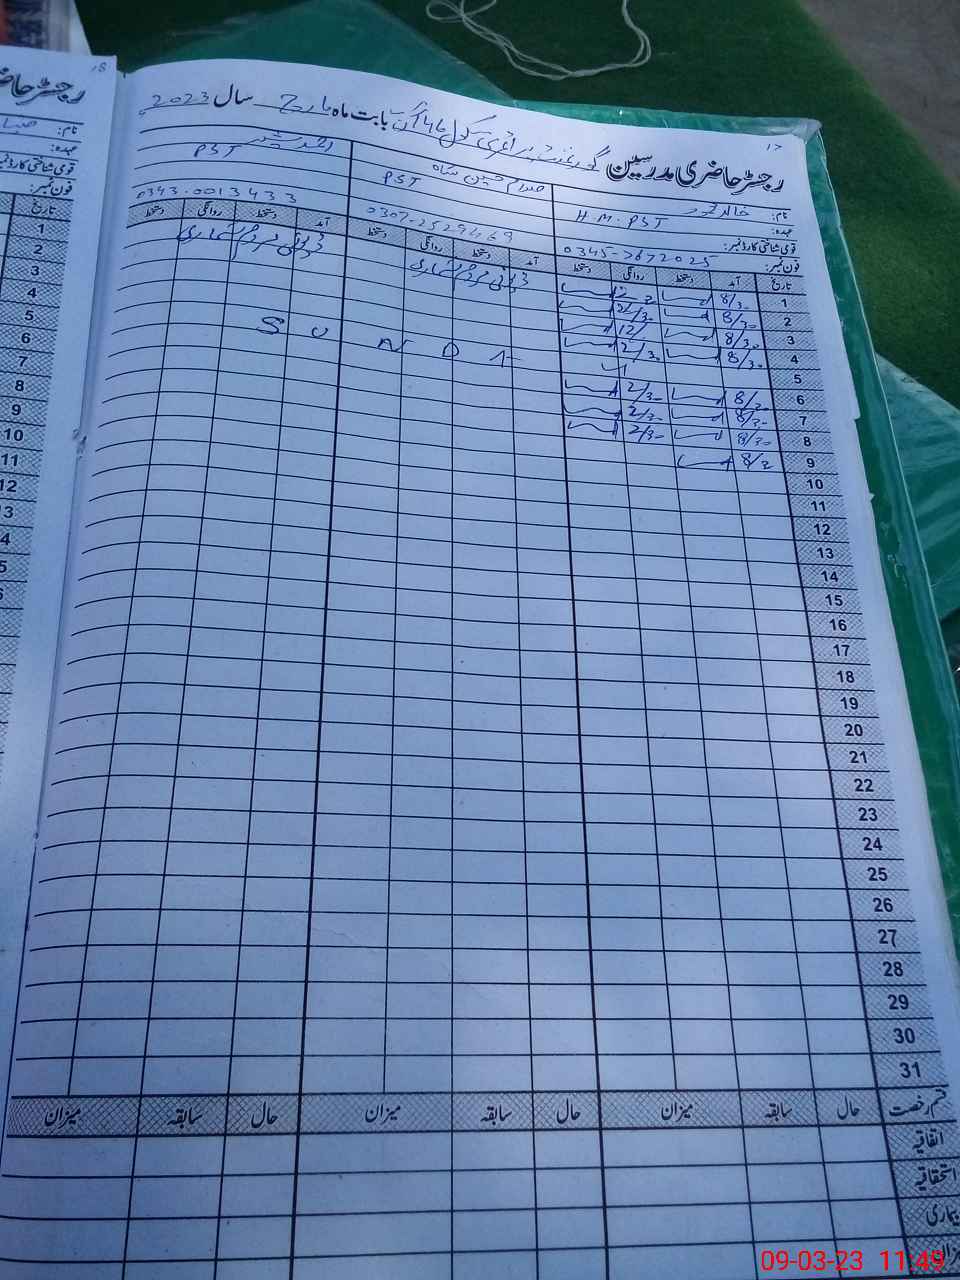 رجسٹر حاضری مدرسین گورنمنٹ پرائمری سکول 46 بابت ماہ مارچ سال 2023
نام: خالد صدام حسین شاہ
عہدہ: H.M. PST PST PST
قومی شناختی کارڈ نمبر:
فون نمبر: 0345-7672025 0307-2529469 0343-0013433
تاریخ آمد دستخط روانگی دستخط آمد دستخط روانگی دستخط آمد دستخط روانگی دستخط
1 8/30 ڈیوٹی مردم شماری ڈیوٹی مردم شماری
2 8/30 2/30
3 8/30 12/
4 8/30 2/30
5 S U N D A Y
6 8/30 2/30
7 8/30 2/30
8 8/30 2/30
9 8/30
10
11
12
13
14
15
16
17
18
19
20
21
22
23
24
25
26
27
28
29
30
31
قسم رخصت حال سابقہ میزان حال سابقہ میزان حال سابقہ میزان
اتفاقیہ
استحقاقیہ
بیماری
رجسٹر حاضری
نام:
عہدہ:
قومی شناختی کارڈ نمبر
فون نمبر:
تاریخ
1
2
3
4
5
6
7
8
9
10
11
12
13
4
5
09-03-23 11:49